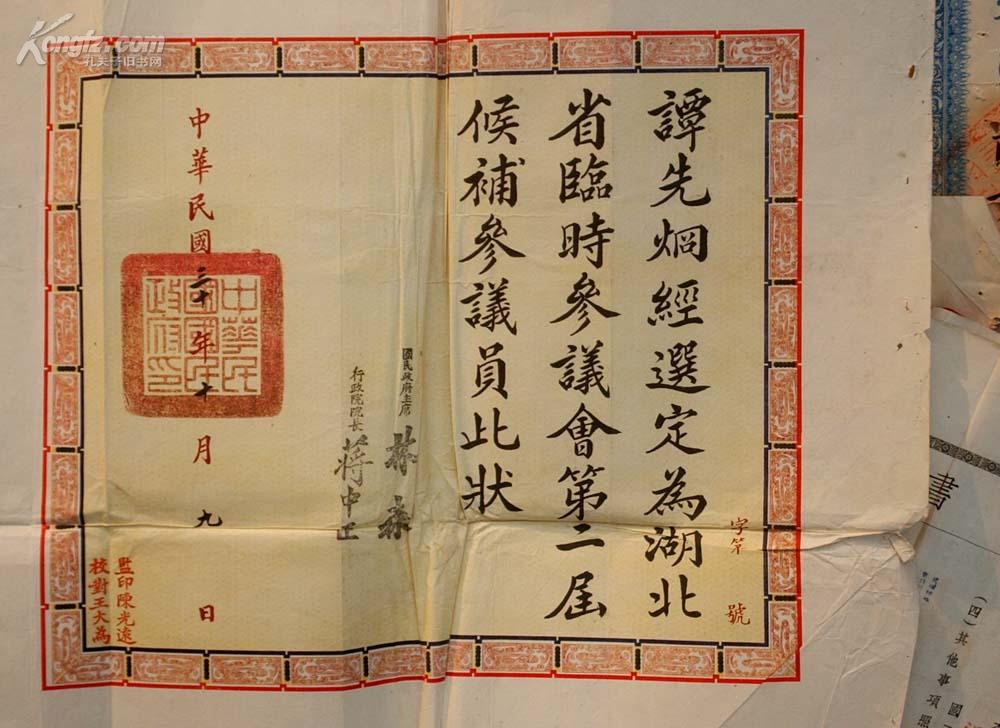 譚先烱經選定為湖北
省臨時參議會第二屆
候補參議員此狀
字第 號
國民政府主席 林森
行政院院長 蔣中正
中華民國三十年十月九日
中華民國國民政府印
監印陳光遠
校對王大為
Kongfz.com
孔夫子旧书网
書
(四)其他事項照
國